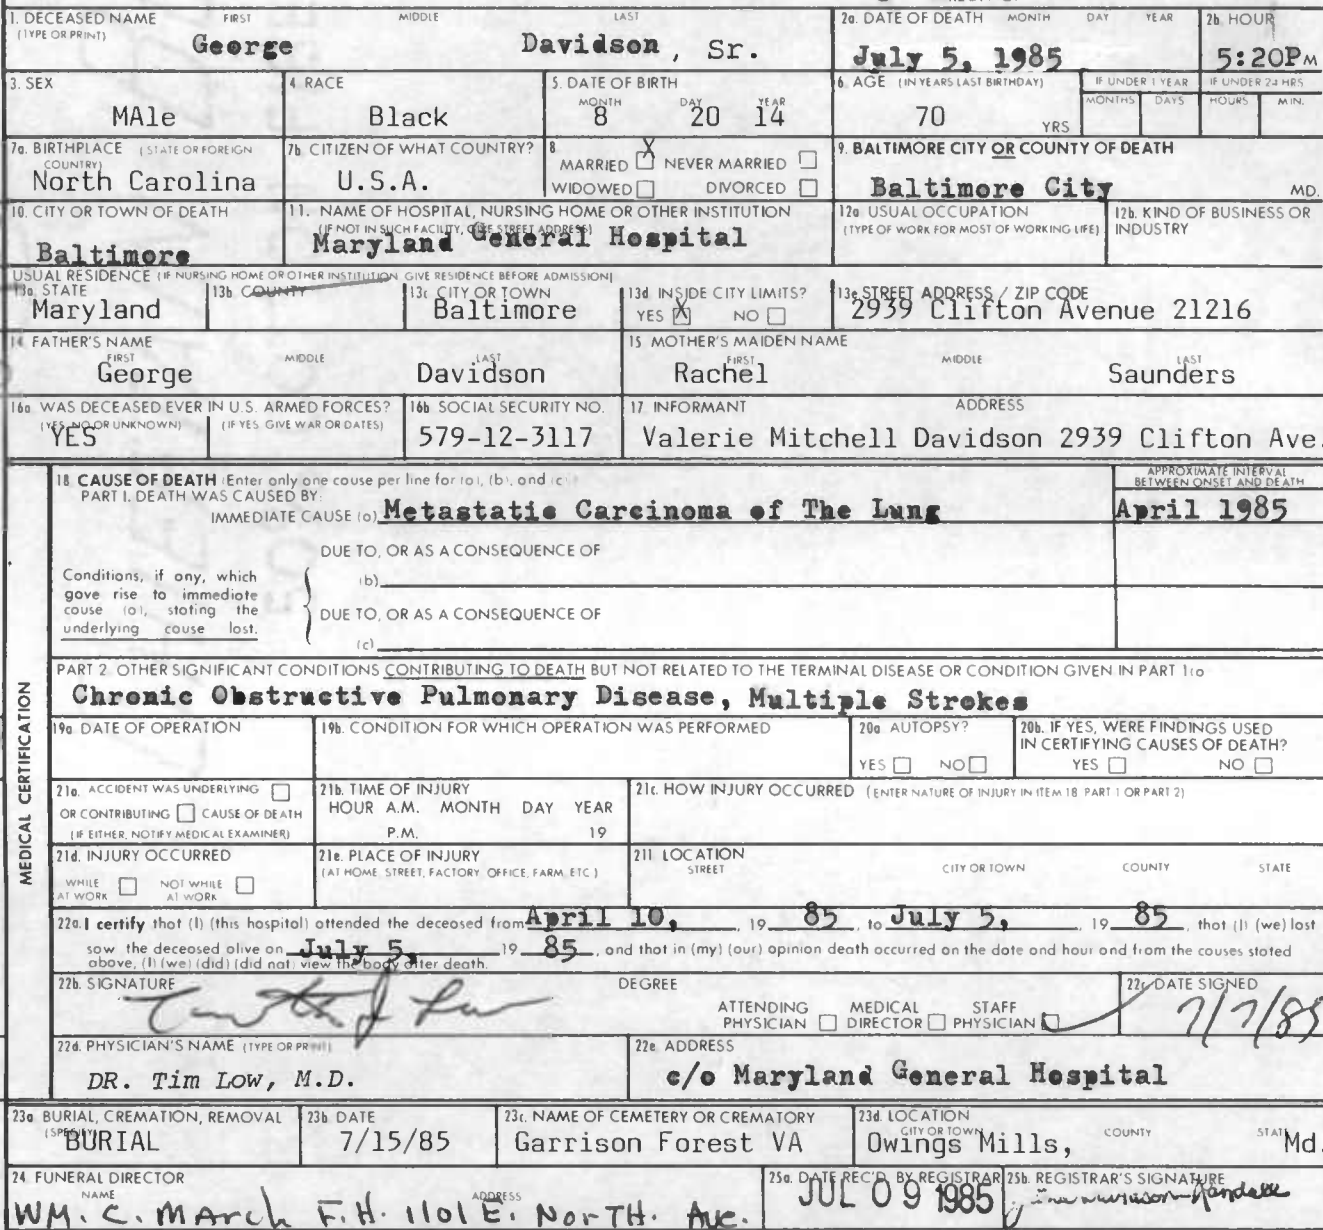 1. DECEASED NAME FIRST MIDDLE LAST
(TYPE OR PRINT)
George Davidson, Sr.
2a. DATE OF DEATH MONTH DAY YEAR
July 5, 1985
2b. HOUR
5:20PM
3. SEX
MAle
4. RACE
Black
5. DATE OF BIRTH
MONTH DAY YEAR
8 20 14
6. AGE (IN YEARS LAST BIRTHDAY)
70 YRS
IF UNDER 1 YEAR
MONTHS DAYS
IF UNDER 24 HRS
HOURS MIN.
7a. BIRTHPLACE (STATE OR FOREIGN
COUNTRY)
North Carolina
7b. CITIZEN OF WHAT COUNTRY?
U.S.A.
8
MARRIED X NEVER MARRIED
WIDOWED DIVORCED
9. BALTIMORE CITY OR COUNTY OF DEATH
Baltimore City MD.
10. CITY OR TOWN OF DEATH
Baltimore
11. NAME OF HOSPITAL, NURSING HOME OR OTHER INSTITUTION
(IF NOT IN SUCH FACILITY, GIVE STREET ADDRESS)
Maryland General Hospital
12a USUAL OCCUPATION
(TYPE OF WORK FOR MOST OF WORKING LIFE)
12b. KIND OF BUSINESS OR
INDUSTRY
USUAL RESIDENCE (IF NURSING HOME OR OTHER INSTITUTION GIVE RESIDENCE BEFORE ADMISSION)
13a. STATE
Maryland
13b COUNTY
13c CITY OR TOWN
Baltimore
13d INSIDE CITY LIMITS?
YES X NO
13e STREET ADDRESS / ZIP CODE
2939 Clifton Avenue 21216
14 FATHER'S NAME
FIRST MIDDLE LAST
George Davidson
15 MOTHER'S MAIDEN NAME
FIRST MIDDLE LAST
Rachel Saunders
16a WAS DECEASED EVER IN U.S. ARMED FORCES?
(YES, NO OR UNKNOWN) (IF YES, GIVE WAR OR DATES)
YES
16b SOCIAL SECURITY NO.
579-12-3117
17 INFORMANT ADDRESS
Valerie Mitchell Davidson 2939 Clifton Ave.
MEDICAL CERTIFICATION
18 CAUSE OF DEATH (Enter only one cause per line for (a), (b), and (c))
PART I. DEATH WAS CAUSED BY:
IMMEDIATE CAUSE (a) Metastatic Carcinoma of The Lung
APPROXIMATE INTERVAL
BETWEEN ONSET AND DEATH
April 1985
DUE TO, OR AS A CONSEQUENCE OF
(b)
Conditions, if any, which
gave rise to immediate
cause (a), stating the
underlying cause last.
DUE TO, OR AS A CONSEQUENCE OF
(c)
PART 2 OTHER SIGNIFICANT CONDITIONS CONTRIBUTING TO DEATH BUT NOT RELATED TO THE TERMINAL DISEASE OR CONDITION GIVEN IN PART 1(a
Chronic Obstructive Pulmonary Disease, Multiple Strokes
19a DATE OF OPERATION
19b. CONDITION FOR WHICH OPERATION WAS PERFORMED
20a AUTOPSY?
YES NO
20b. IF YES, WERE FINDINGS USED
IN CERTIFYING CAUSES OF DEATH?
YES NO
21a. ACCIDENT WAS UNDERLYING
OR CONTRIBUTING CAUSE OF DEATH
(IF EITHER, NOTIFY MEDICAL EXAMINER)
21b. TIME OF INJURY
HOUR A.M. MONTH DAY YEAR
P.M. 19
21c. HOW INJURY OCCURRED (ENTER NATURE OF INJURY IN ITEM 18 PART 1 OR PART 2)
21d. INJURY OCCURRED
WHILE AT WORK NOT WHILE AT WORK
21e. PLACE OF INJURY
(AT HOME, STREET, FACTORY, OFFICE, FARM, ETC.)
21f LOCATION
STREET CITY OR TOWN COUNTY STATE
22a. I certify that (I) (this hospital) attended the deceased from April 10, 19 85 to July 5, 19 85, that (I) (we) last
saw the deceased alive on July 5, 19 85, and that in (my) (our) opinion death occurred on the date and hour and from the causes stated
above, (I) (we) (did) (did not) view the body after death.
22b. SIGNATURE DEGREE
ATTENDING PHYSICIAN MEDICAL DIRECTOR STAFF PHYSICIAN
22c. DATE SIGNED
7/7/85
22d. PHYSICIAN'S NAME (TYPE OR PRINT)
DR. Tim Low, M.D.
22e ADDRESS
c/o Maryland General Hospital
23a BURIAL, CREMATION, REMOVAL
(SPECIFY)
BURIAL
23b DATE
7/15/85
23c. NAME OF CEMETERY OR CREMATORY
Garrison Forest VA
23d. LOCATION
CITY OR TOWN COUNTY STATE
Owings Mills, Md.
24 FUNERAL DIRECTOR
NAME ADDRESS
WM. C. MArch F.H. 1101 E. NorTH. Ave.
25a. DATE REC'D. BY REGISTRAR
JUL 09 1985
25b. REGISTRAR'S SIGNATURE